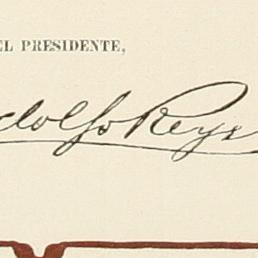 EL PRESIDENTE,
dolfo Reyes